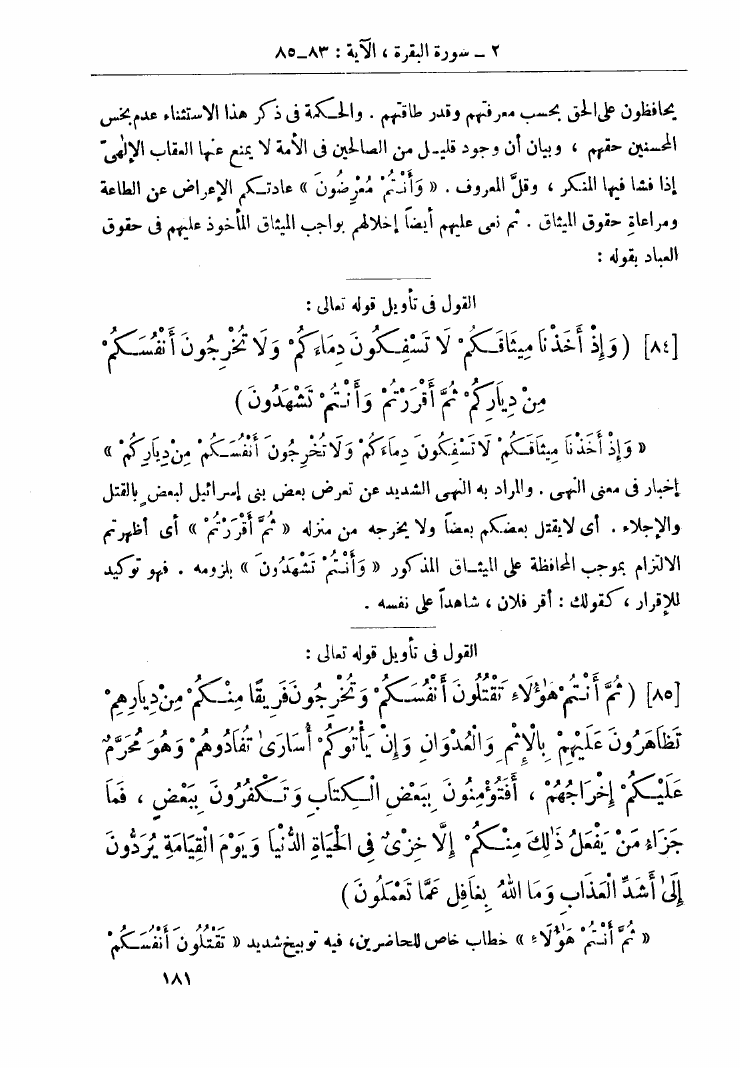 ٢ ــ سورة البقرة ، الآية : ٨٣ــ٨٥
يحافظون على الحق بحسب معرفتهم وقدر طاقتهم . والحكمة فى ذكر هذا الاستثناء عدم بخس
المحسنين حقهم ، وبيان أن وجود قليل من الصالحين فى الأمة لا يمنع عنها العقاب الإلٰهىّ
إذا فشا فيها المنكر ، وقلَّ المعروف . « وَأَنْتُمْ مُعْرِضُونَ » عادتكم الإعراض عن الطاعة
ومراعاةِ حقوق الميثاق . ثم نمى عليهم أيضاً إخلالهم بواجب الميثاق المأخوذ عليهم فى حقوق
العباد بقوله :
القول فى تأويل قوله تعالى :
[٨٤] ( وَإِذْ أَخَذْنَا مِيثَاقَكُمْ لَا تَسْفِكُونَ دِمَاءَكُمْ وَلَا تُخْرِجُونَ أَنْفُسَكُمْ
مِنْ دِيَارِكُمْ ثُمَّ أَقْرَرْتُمْ وَأَنْتُمْ تَشْهَدُونَ )
« وَإِذْ أَخَذْنَا مِيثَاقَكُمْ لَا تَسْفِكُونَ دِمَاءَكُمْ وَلَا تُخْرِجُونَ أَنْفُسَكُمْ مِنْ دِيَارِكُمْ »
إخبار فى معنى النهى . والمراد به النهى الشديد عن تعرض بعض بنى إسرائيل لبعض بالقتل
والإجلاء . أى لا يقتل بعضكم بعضاً ولا يخرجه من منزله « ثُمَّ أَقْرَرْتُمْ » أى أظهرتم
الالتزام بموجب المحافظة على الميثاق المذكور « وَأَنْتُمْ تَشْهَدُونَ » بلزومه . فهو توكيد
للإقرار ، كقولك : أقر فلان ، شاهداً على نفسه .
القول فى تأويل قوله تعالى :
[٨٥] ( ثُمَّ أَنْتُمْ هَؤُلَاءِ تَقْتُلُونَ أَنْفُسَكُمْ وَتُخْرِجُونَ فَرِيقًا مِنْكُمْ مِنْ دِيَارِهِمْ
تَظَاهَرُونَ عَلَيْهِمْ بِالْإِثْمِ وَالْعُدْوَانِ وَإِنْ يَأْتُوكُمْ أُسَارَىٰ تُفَادُوهُمْ وَهُوَ مُحَرَّمٌ
عَلَيْكُمْ إِخْرَاجُهُمْ ، أَفَتُؤْمِنُونَ بِبَعْضِ الْكِتَابِ وَتَكْفُرُونَ بِبَعْضٍ ، فَمَا
جَزَاءُ مَنْ يَفْعَلُ ذَٰلِكَ مِنْكُمْ إِلَّا خِزْىٌ فِى الْحَيَاةِ الدُّنْيَا وَيَوْمَ الْقِيَامَةِ يُرَدُّونَ
إِلَىٰ أَشَدِّ الْعَذَابِ وَمَا اللهُ بِغَافِلٍ عَمَّا تَعْمَلُونَ )
« ثُمَّ أَنْتُمْ هَؤُلَاءِ » خطاب خاص للحاضرين، فيه توبيخ شديد « تَقْتُلُونَ أَنْفُسَكُمْ
١٨١